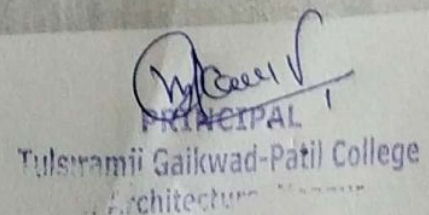 PRINCIPAL
Tulsiramji Gaikwad-Patil College
Architecture